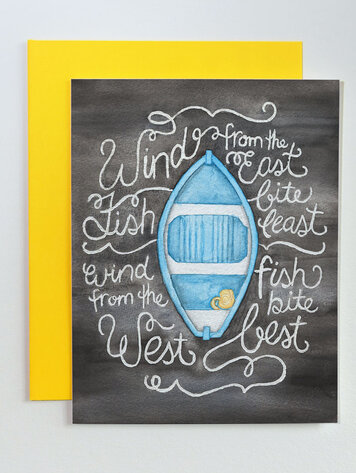 Wind from the
East
Fish bite
least
wind fish
from the bite
West best